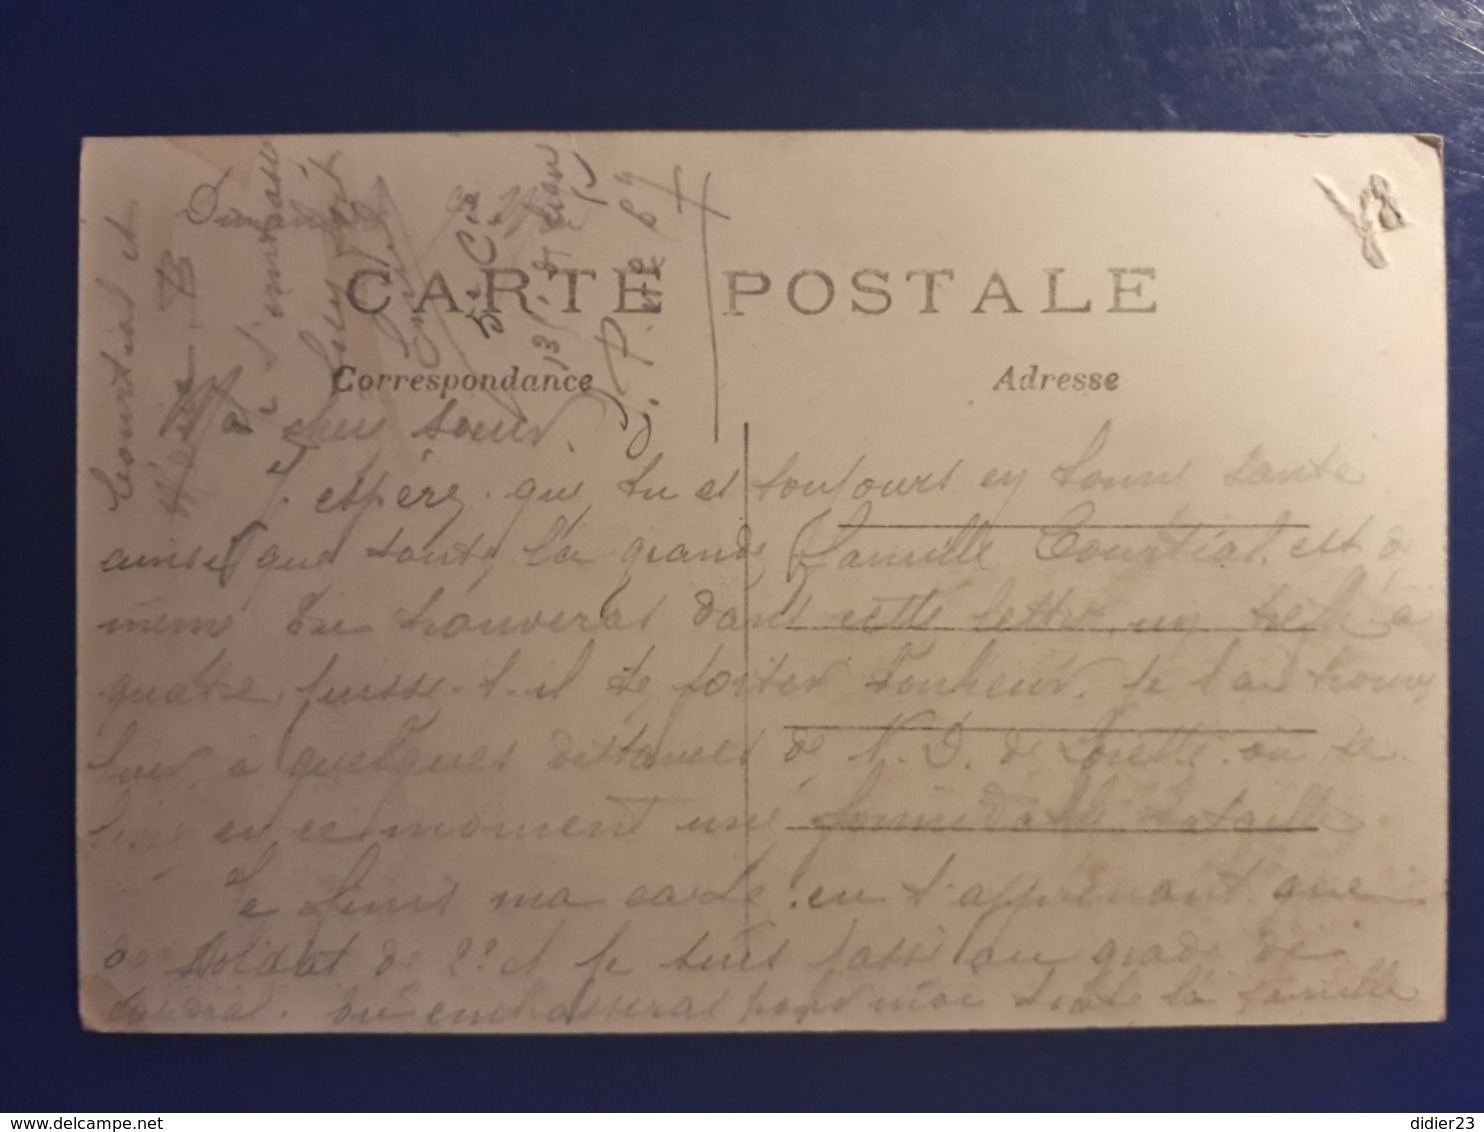 Dimanche
CARTE POSTALE
Correspondance
Adresse
Ma cher soeur.
J'espére que tu es toujours en bonne santé
ainsi que toute la grande famille Courtial. est de
même Tu trouveras dans cette lettre un trèfle à
quatre. puisse-t-il te porter bonheur. Je l'ai trouvé
hier à quelques distances de N. D. de Lorette. ou se
livre en ce moment une formidable bataille.
Je finis ma carte. en t'apprenant que
de soldat de 2e cl je suis passé au grade de
caporal. Tu embrasseras pour moi toute la famille
Courtial et
Marie. B
Je t'embrasse
5e Cie
S. P. No 69
didier23